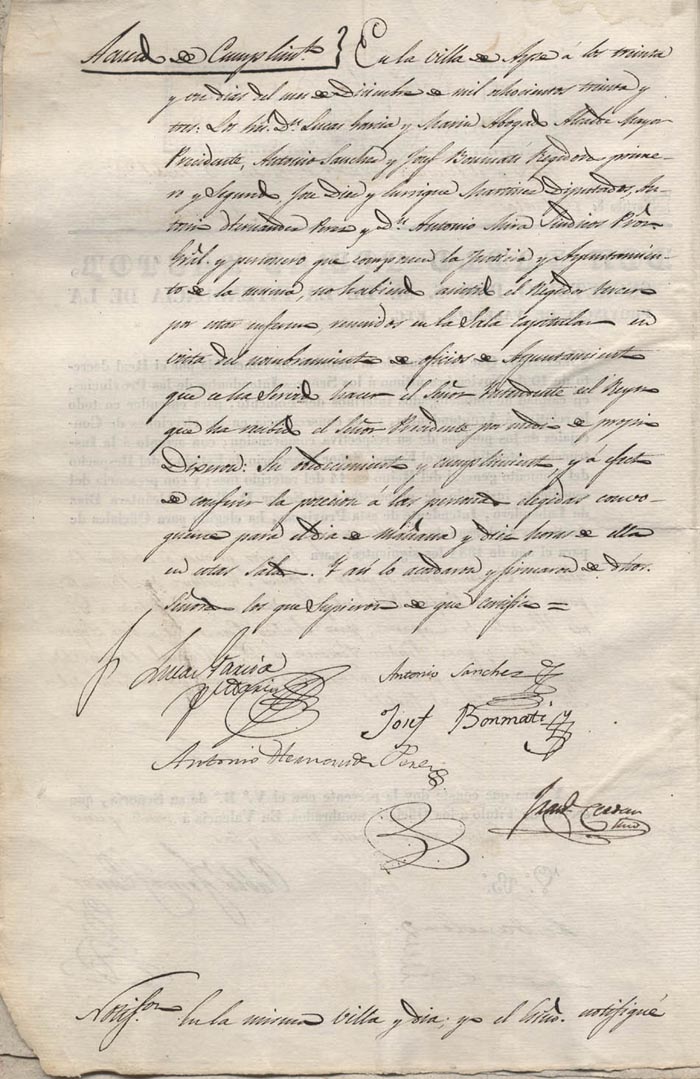 Acued de Cumplimto } En la villa de Aspe á los treinta
y un dias del mes de Diciembre de mil ochocientos treinta y
tres: Los Sres. Dn. Lucas Garcia y Maria Abogado Alcalde Mayor
Presidente, Antonio Sanchez y Josef Bonmatí Regidores prime-
ro y Segundo Jose Diez y Enrrique Martinez Diputados, An-
tonio Hernandez Perez y Dn. Antonio Mira Sindicos Pror.
Gral. y personero que componen la Justicia y Ayuntamien-
to de la misma, no habiendo asistido el Regidor tercero
por estar enfermo, reunidos en la Sala Capitular en
vista del nombramiento de oficios de Ayuntamiento
que se ha servido hacer el Señor Yntendente del Reyno
que ha recibido el Señor Presidente por medio de propio
Dixeron: Su obedecimiento y cumplimiento, y á efecto
de conferir la posecion á las personas elegidas convo-
quense para el dia de mañana y diez horas de ella
en estas Salas. Y asi lo acordaron y firmaron de dhos.
Señores los que Supieron de que certifico =
Lucas Garcia
y Maria
Antonio Sanchez
Josef Bonmatí
Antonio Hernandez Perez
Notifon. En la misma Villa y dia; yo el Esno. notifiqué